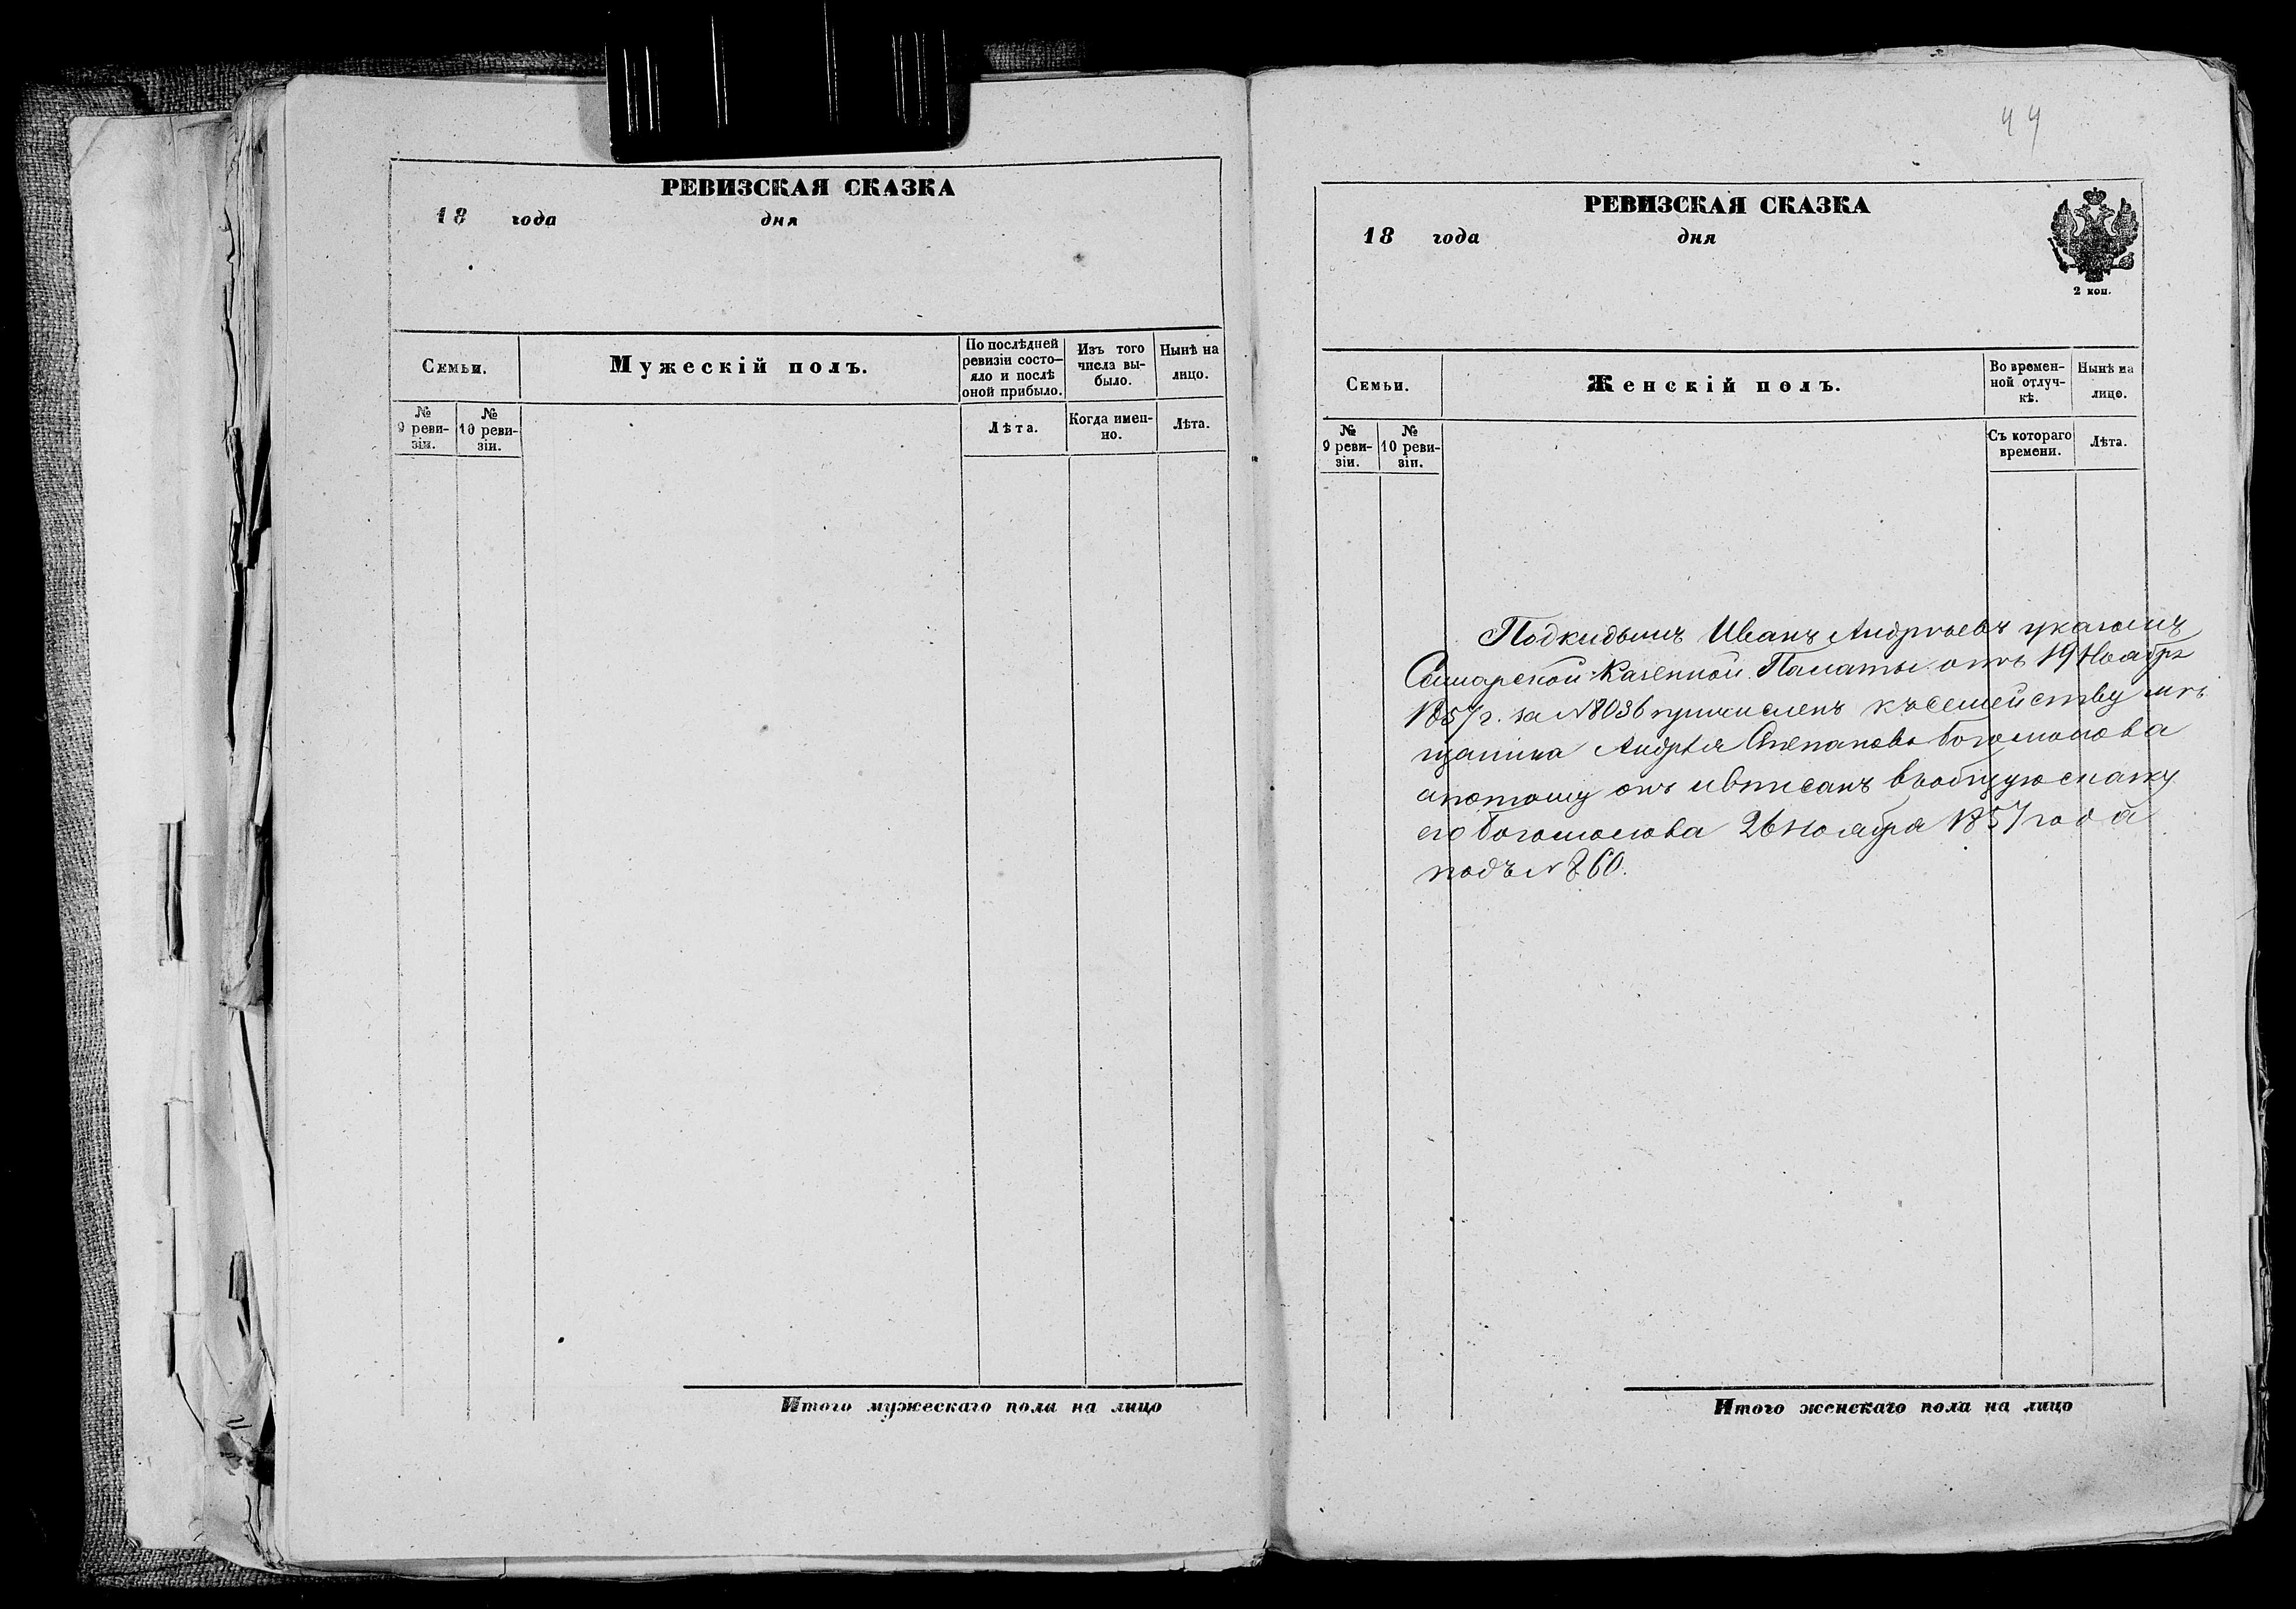 РЕВИЗСКАЯ СКАЗКА
18 года дня
Семьи.
Мужескій полъ.
По послѣдней
ревизіи состо-
яло и послѣ
оной прибыло.
Изъ того
числа вы-
было.
Нынѣ на
лицо.
№
9 реви-
зіи.
№
10 реви-
зіи.
Лѣта.
Когда имен-
но.
Лѣта.
Итого мужескаго пола на лицо
44
РЕВИЗСКАЯ СКАЗКА
18 года дня
2 коп.
Семьи.
Женскій полъ.
Во времен-
ной отлуч-
кѣ.
Нынѣ на
лицо.
№
9 реви-
зіи.
№
10 реви-
зіи.
Съ котораго
времени.
Лѣта.
Подкидышъ Иванъ Андреевъ указомъ
Самарской Казенной Палаты отъ 19 Ноября
1857 г. за № 8036 причисленъ къ семейству мѣ
щанина Андрея Степанова Богомолова
а потому онъ и вписанъ въ общую сказку
его Богомолова 26 ноября 1857 года
подъ № 860.
Итого женскаго пола на лицо